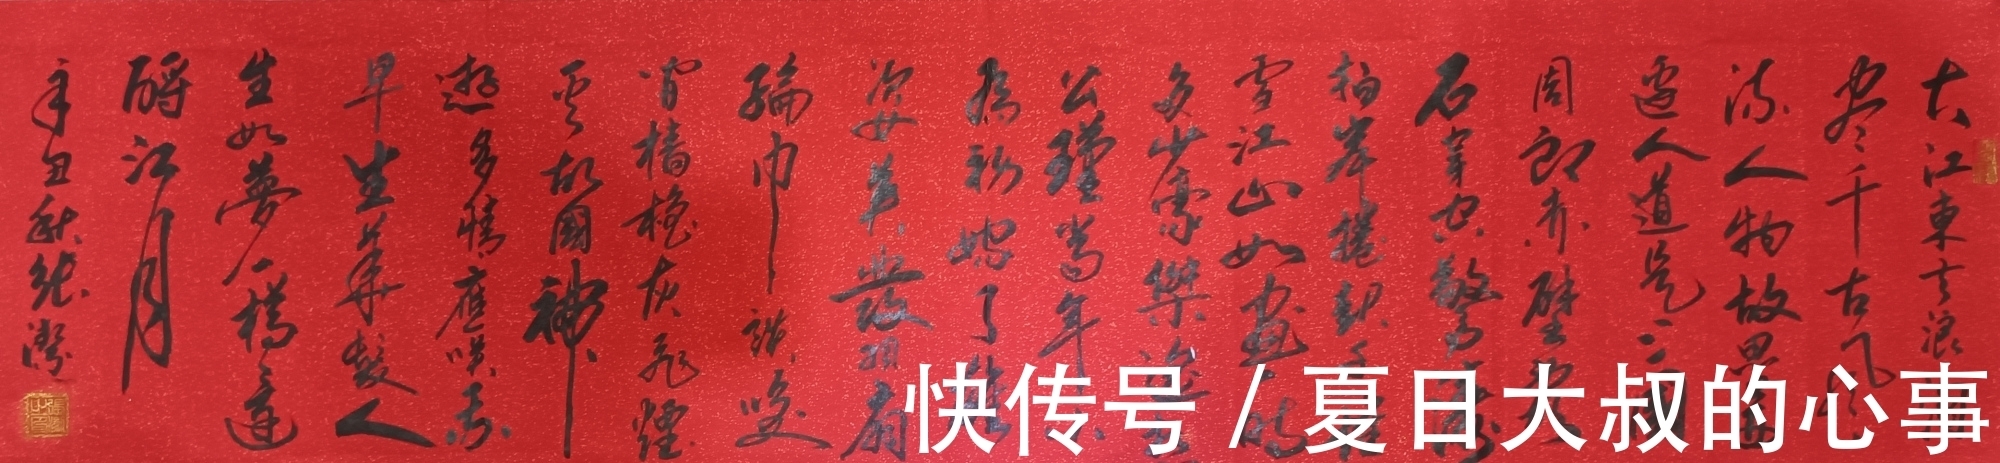 大江東去浪
尽千古风
流人物故垒西
邊人道是三國
周郎赤壁
石穿空驚濤
拍岸捲起千
雪江山如畫一時
多少豪傑遥
公瑾當年小
乔初嫁了雄
姿英發羽扇
綸巾談笑
间檣櫓灰飛煙
灭故國神
遊多情應笑我
早生華髮人
生如夢一樽還
酹江月
辛丑秋
快传号 / 夏日大叔的心事